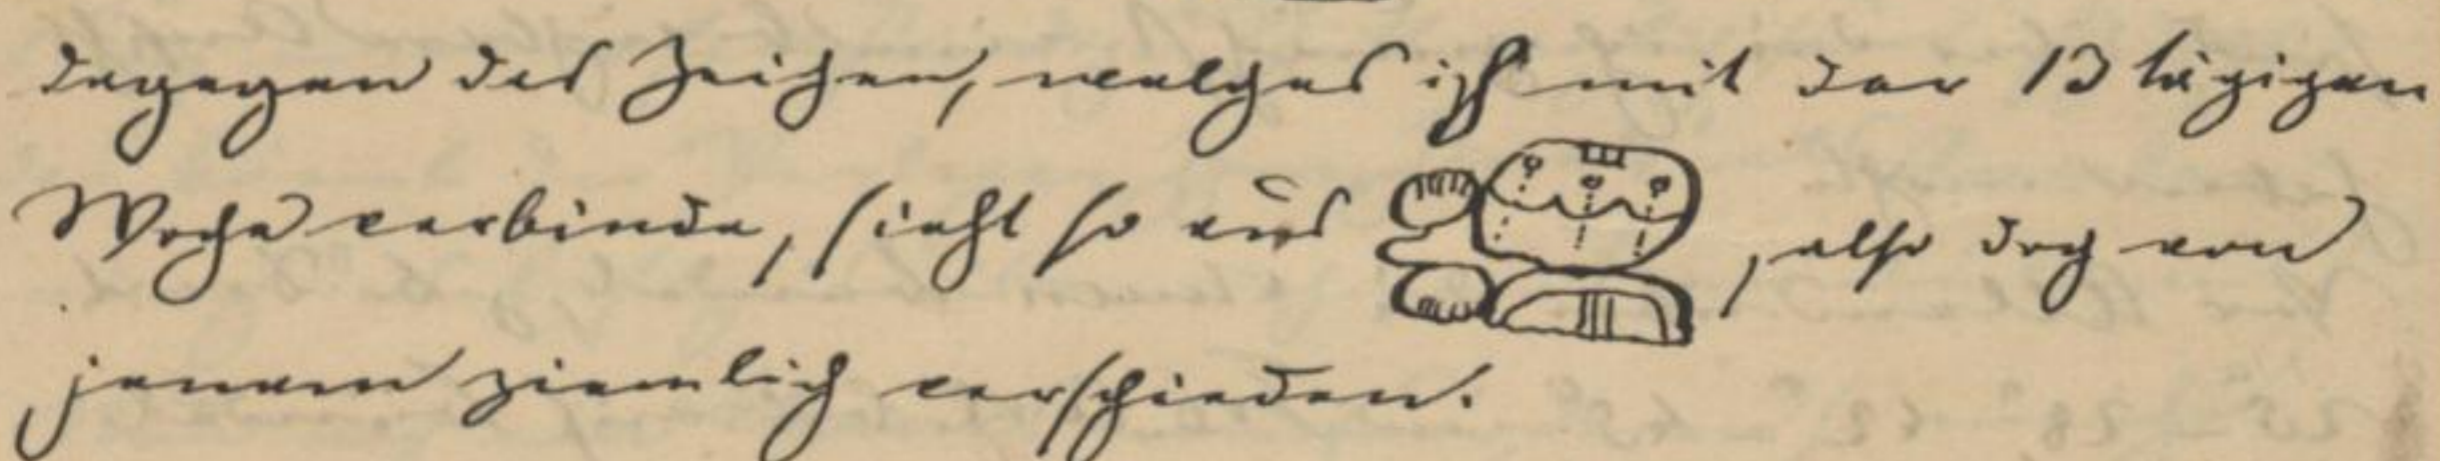 dagegen das Zeichen, welches ich mit der 13 tägigen
Woche verbinde, sieht so aus , also doch von
jenem ziemlich verschieden.